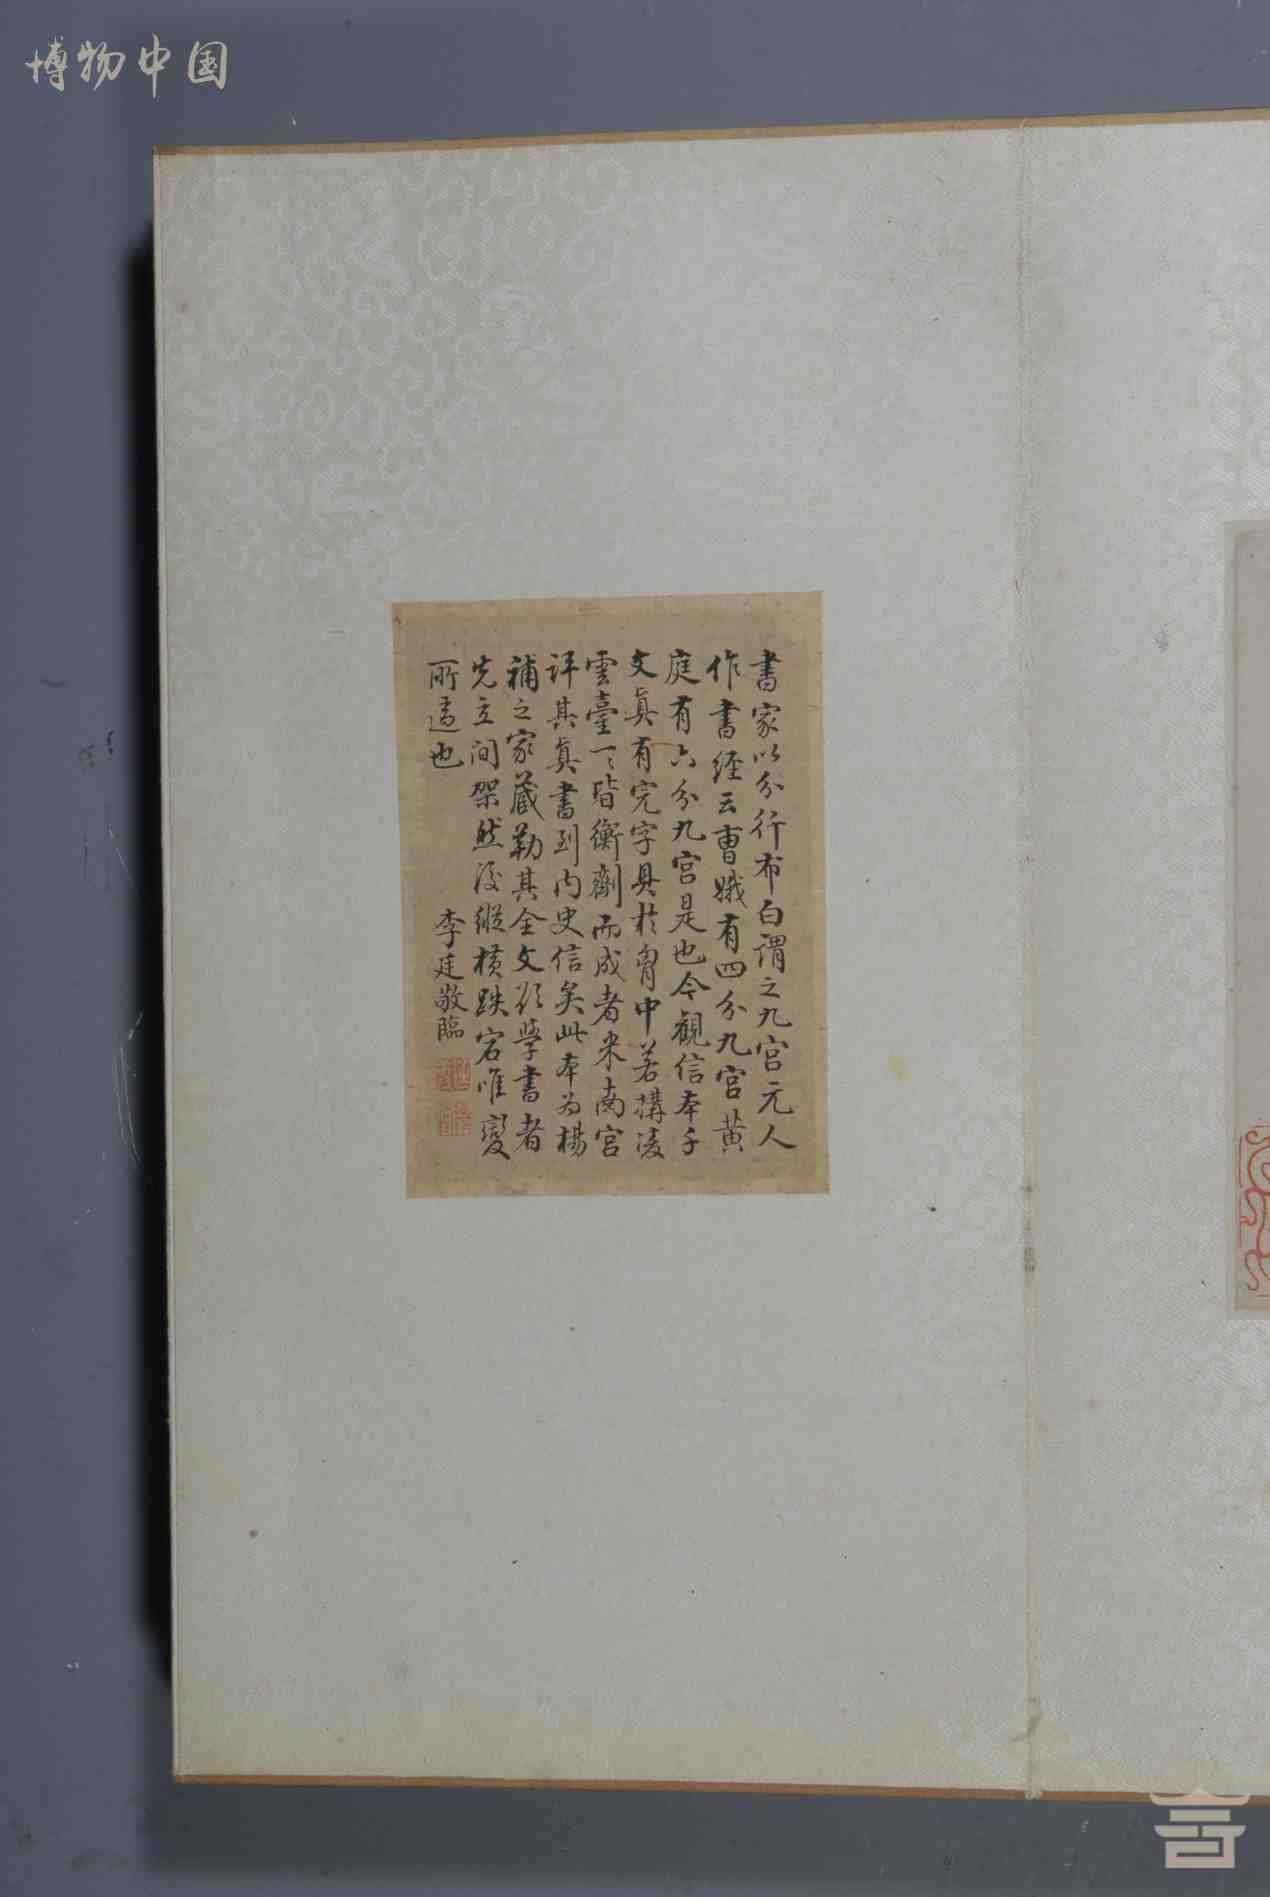 博物中国
書家以分行布白謂之九宮元人
作書經云曹娥有四分九宮黃
庭有六分九宮是也今觀信本千
文真有完字具於胷中若搆凌
雲臺一一皆衡劑而成者米南宮
評其真書到內史信矣此本為楊
補之家藏勒其全文欲學書者
先立間架然後縱橫跌宕唯變
所適也
李廷敬臨